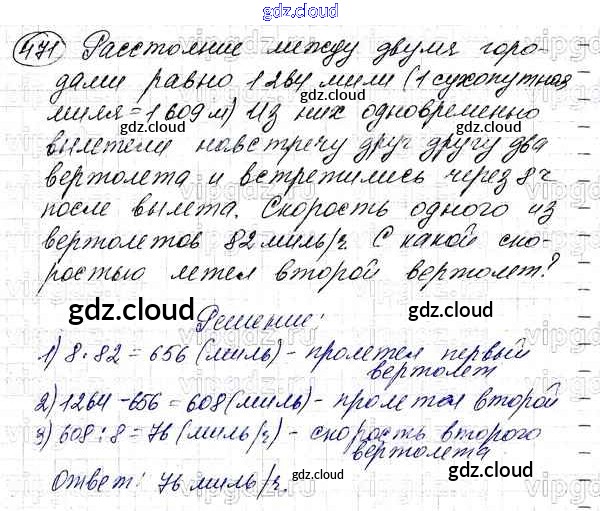 gdz.cloud
471 Расстояние между двумя горо-
gdz.cloud
дами равно 1264 мили (1 сухопутная
миля = 1609 м) Из них одновременно
вылетели навстречу друг другу два
вертолета и встретились через 8 ч
после вылета. Скорость одного из
вертолетов 82 миль/ч. С какой ско-
ростью летел второй вертолет?
gdz.cloud
gdz.cloud
Решение:
1) 8 · 82 = 656 (миль) - пролетел первый
вертолет
2) 1264 - 656 = 608 (миль) - пролетел второй
3) 608 : 8 = 76 (миль/ч) - скорость второго
вертолета.
Ответ: 76 миль/ч.
gdz.cloud
gdz.cloud